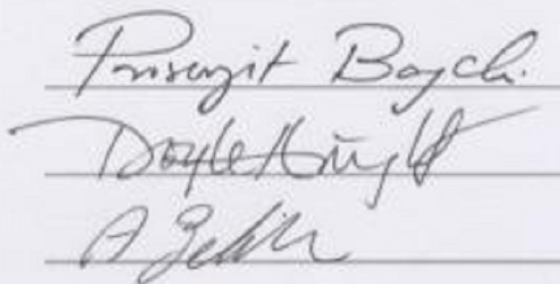 Prosenjit Bagchi
Doyle Knight
A